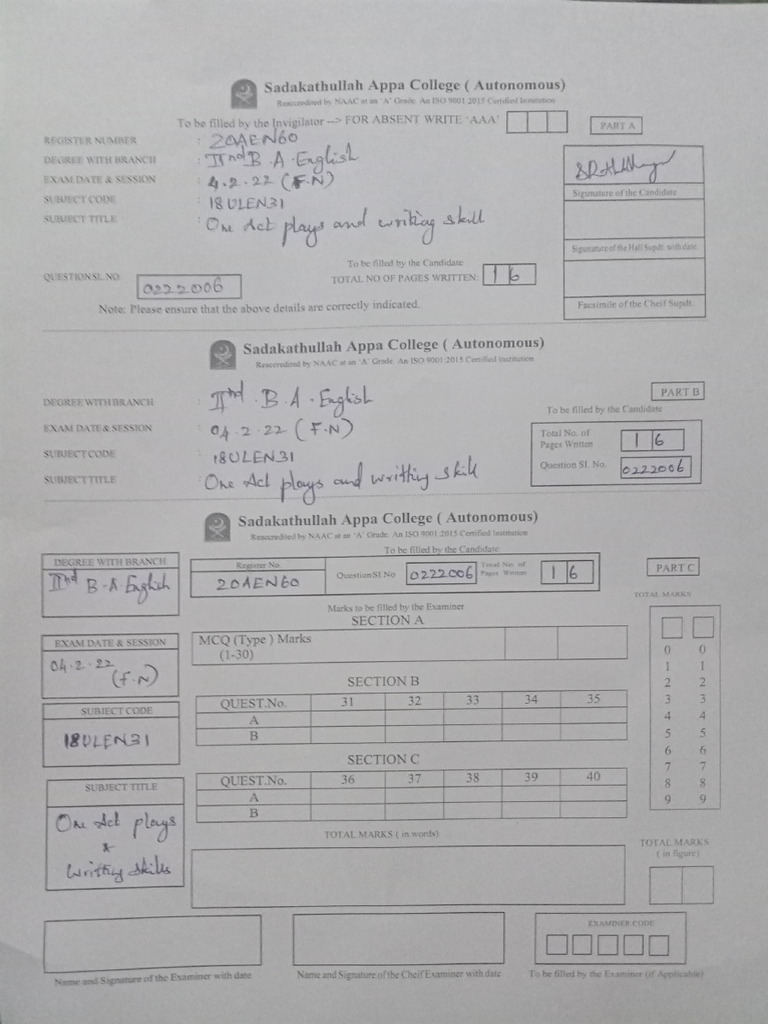 Sadakathullah Appa College ( Autonomous)
Reaccredited by NAAC at an 'A' Grade. An ISO 9001:2015 Certified Institution
To be filled by the Invigilator --> FOR ABSENT WRITE 'AAA'
PART A
REGISTER NUMBER : 20AEN60
DEGREE WITH BRANCH : IInd B.A.English
EXAM DATE & SESSION : 4.2.22 (F.N)
SUBJECT CODE : 18ULEN31
SUBJECT TITLE : One Act plays and writing skill
Signature of the Candidate
Signature of the Hall Supdt. with date
Facsimile of the Cheif Supdt.
To be filled by the Candidate
QUESTION SL.NO. 0222006 TOTAL NO OF PAGES WRITTEN: 1 6
Note: Please ensure that the above details are correctly indicated.
Sadakathullah Appa College ( Autonomous)
Reaccredited by NAAC at an 'A' Grade. An ISO 9001:2015 Certified Institution
PART B
DEGREE WITH BRANCH : IInd . B.A.English
To be filled by the Candidate
EXAM DATE & SESSION : 04.2.22 (F.N)
Total No. of Pages Written 1 6
SUBJECT CODE : 18ULEN31
Question Sl. No. 0222006
SUBJECT TITLE : One Act plays and writting skill
Sadakathullah Appa College ( Autonomous)
Reaccredited by NAAC at an 'A' Grade. An ISO 9001:2015 Certified Institution
To be filled by the Candidate
PART C
DEGREE WITH BRANCH
IInd B.A.English
Register No.
20AEN60
Question Sl No 0222006
Total No. of Pages Written 1 6
TOTAL MARKS
Marks to be filled by the Examiner
SECTION A
MCQ (Type ) Marks
(1-30)
EXAM DATE & SESSION
04.2.22
(F.N)
SECTION B
QUEST.No. 31 32 33 34 35
A
B
SUBJECT CODE
18ULEN31
SECTION C
QUEST.No. 36 37 38 39 40
A
B
0 0
1 1
2 2
3 3
4 4
5 5
6 6
7 7
8 8
9 9
SUBJECT TITLE
One Act plays
&
Writting skills
TOTAL MARKS ( in words)
TOTAL MARKS
( in figure)
EXAMINER CODE
Name and Signature of the Examiner with date
Name and Signature of the Cheif Examiner with date
To be filled by the Examiner (if Applicable)